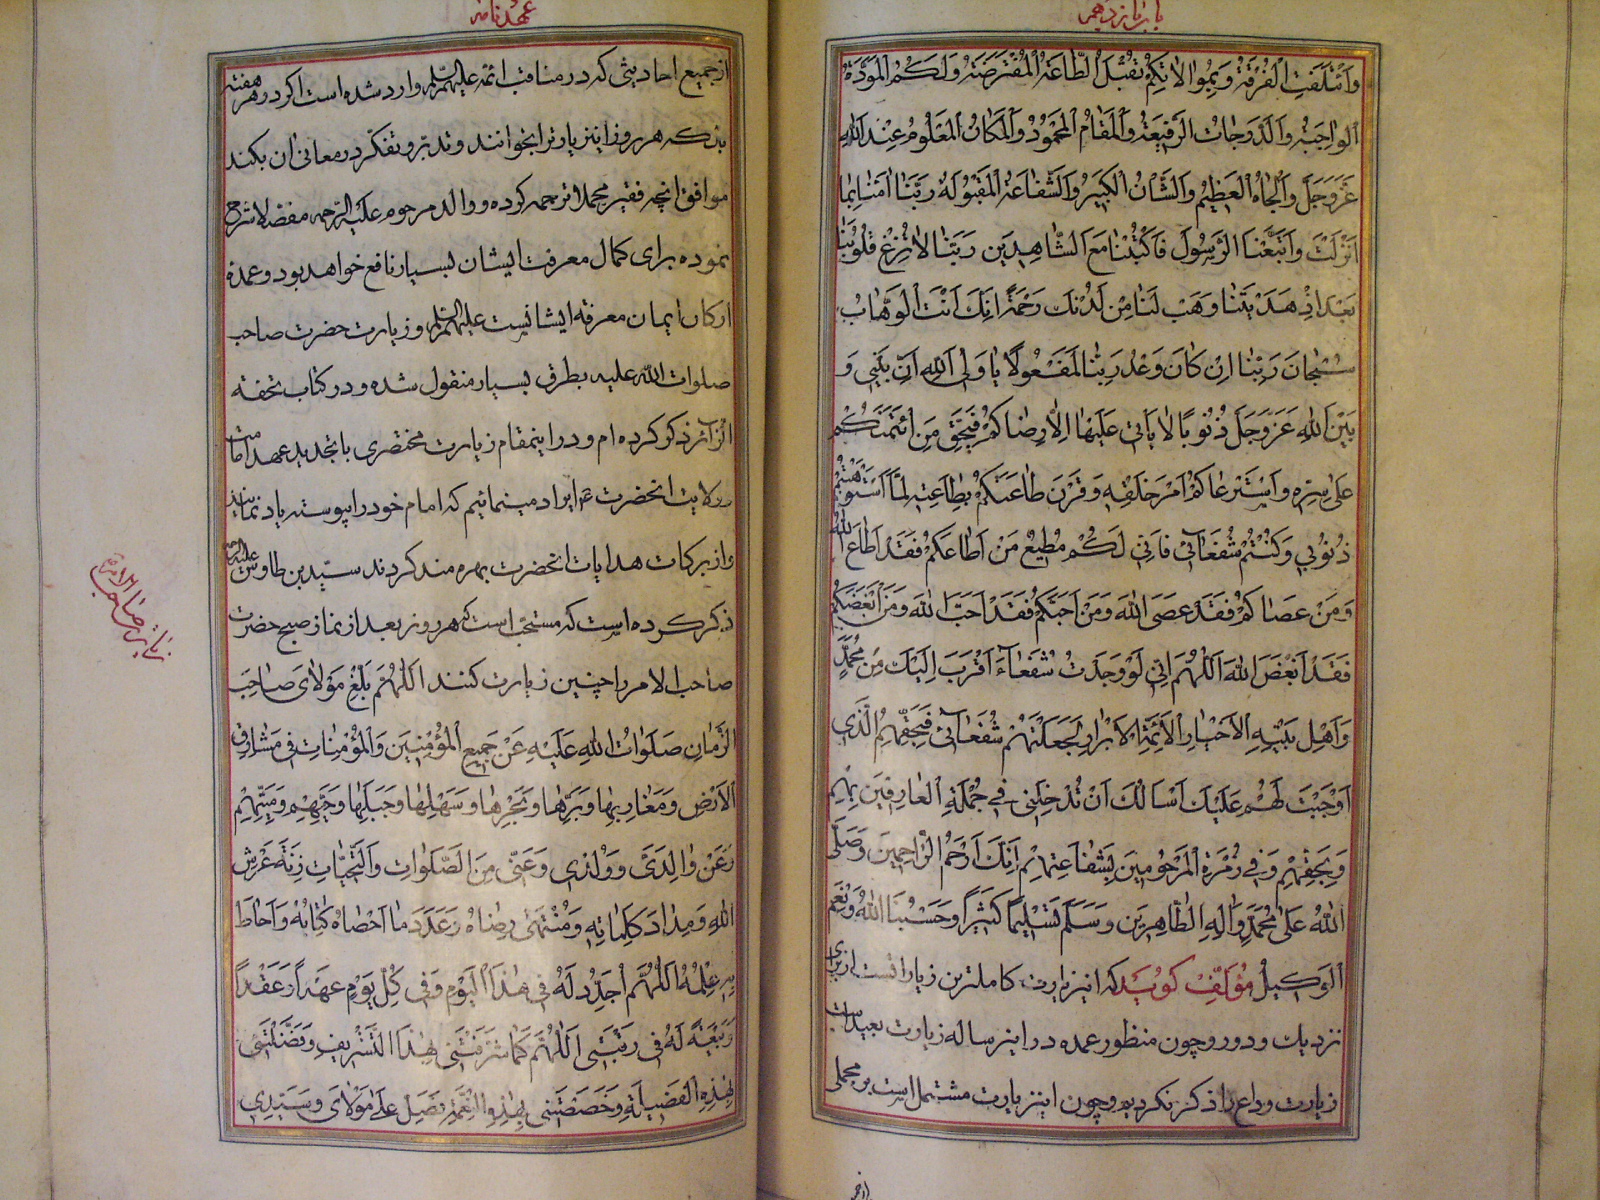 باب یازدهم
وَائْتَلَفَتِ الْفُرْقَةُ وَبِمُوالاتِكُمْ تُقْبَلُ الطَّاعَةُ الْمُفْتَرَضَةُ وَلَكُمُ الْمَوَدَّةُ
الْواجِبَةُ وَالدَّرَجاتُ الرَّفِيعَةُ وَالْمَقامُ الْمَحْمُودُ وَالْمَكانُ الْمَعْلُومُ عِنْدَ اللهِ
عَزَّوَجَلَّ وَالْجاهُ الْعَظِيمُ وَالشَّأْنُ الْكَبِيرُ وَالشَّفاعَةُ الْمَقْبُولَةُ رَبَّنا امَنّا بِما
اَنْزَلْتَ وَاتَّبَعْنَا الرَّسُولَ فَاكْتُبْنا مَعَ الشّاهِدِينَ رَبَّنا لاتُزِغْ قُلُوبَنا
بَعْدَ اِذْ هَدَيْتَنا وَهَبْ لَنا مِنْ لَدُنْكَ رَحْمَةً اِنَّكَ اَنْتَ الْوَهّابُ
سُبْحانَ رَبِّنا اِنْ كانَ وَعْدُ رَبِّنا لَمَفْعُولًا يا وَلِىَّ اللهِ اِنَّ بَيْنِي وَ
بَيْنَ اللهِ عَزَّوَجَلَّ ذُنُوبًا لا يَأتي عَلَيْها اِلاّ رِضاكُمْ فَبِحَقِّ مَنِ ائْتَمَنَكُمْ
عَلى سِرِّهِ وَاسْتَرْعاكُمْ اَمْرَ خَلْقِهِ وَقَرَنَ طاعَتَكُمْ بِطاعَتِهِ لَمَّا اسْتَوْهَبْتُمْ
ذُنُوبي وَكُنْتُمْ شُفَعائي فَاِنّي لَكُمْ مُطِيعٌ مَنْ اَطاعَكُمْ فَقَدْ اَطاعَ اللهَ
وَمَنْ عَصاكُمْ فَقَدْ عَصَى اللهَ وَمَنْ اَحَبَّكُمْ فَقَدْ اَحَبَّ اللهَ وَمَنْ اَبْغَضَكُمْ
فَقَدْ اَبْغَضَ اللهَ اَللّهُمَّ اِنّي لَوْ وَجَدْتُ شُفَعاءَ اَقْرَبَ اِلَيْكَ مِنْ مُحَمَّدٍ
وَاَهْلِ بَيْتِهِ الْاَخْيارِ الْاَئِمَّةِ الْاَبْرارِ لَجَعَلْتُهُمْ شُفَعائي فَبِحَقِّهِمُ الَّذي
اَوْجَبْتَ لَهُمْ عَلَيْكَ اَسْاَلُكَ اَنْ تُدْخِلَنِي في جُمْلَةِ الْعارِفِينَ بِهِمْ
وَبِحَقِّهِمْ وَفي زُمْرَةِ الْمَرْحُومِينَ بِشَفاعَتِهِمْ اِنَّكَ اَرْحَمُ الرّاحِمِينَ وَصَلَّى
اللهُ عَلى مُحَمَّدٍ وَالِهِ الطّاهِرِينَ وَسَلَّمَ تَسْلِيمًا كَثِيرًا وَحَسْبُنَا اللهُ وَنِعْمَ
الْوَكِيلُ مؤلف گوید که این زیارت کاملترین زیاراتست از برای
نزدیك و دور و چون منظور عمده در این رساله زیارت بعید است
زیارت وداع را ذکر نکردیم و چون این زیارت مشتمل است بر مجملی
از جمیع
عهدنامه
از جمیع احادیثی که در مناقب ائمه علیهم السلم وارد شده است اگر در هر هفته
بلکه هر روز این زیارت را بخوانند و تدبّر و تفکّر در معانی آن بکنند
موافق آنچه فقیر مجملا ترجمه کرده و والد مرحوم علیه الرحمه مفصلا شرح
نموده برای کمال معرفت ایشان بسیار نافع خواهد بود و عمده
ارکان ایمان معرفة ایشانست علیهم السلم و زیارت حضرت صاحب
صلوات الله علیه بطرق بسیار منقول شده و در کتاب تحفه
الزائر ذکر کرده‌ام و در اینمقام زیارت مختصری با تجدید عهد امامت
و ولایت انحضرت ع ایراد مینمائیم که امام خود را پیوسته یاد نمایند
و از برکات هدایات انحضرت بهره‌مند گردند سیّد بن طاوس علیه الرحمه
ذکر کرده است که مستحبّ است که هر روز بعد از نماز صبح حضرت
صاحب الامر را چنین زیارت کنند اَللّهُمَّ بَلِّغْ مَوْلاىَ صاحِبَ
الزَّمانِ صَلَواتُ اللهِ عَلَيْهِ عَنْ جَمِيعِ الْمُؤْمِنِينَ وَالْمُؤْمِناتِ في مَشارِقِ
الْاَرْضِ وَمَغارِبِها وَبَرِّها وَبَحْرِها وَسَهْلِها وَجَبَلِها وَحَيِّهِمْ وَمَيِّتِهِمْ
وَعَنْ والِدَىَّ وَوُلْدى وَعَنّي مِنَ الصَّلَواتِ وَالتَّحِيّاتِ زِنَةَ عَرْشِ
اللهِ وَمِدادَ كَلِماتِهِ وَمُنْتَهى رِضاهُ وَعَدَدَ ما اَحْصاهُ كِتابُهُ وَاَحاطَ
بِهِ عِلْمُهُ اَللّهُمَّ اُجَدِّدُ لَهُ في هٰذَا الْيَوْمِ وَفي كُلِّ يَوْمٍ عَهْدًا وَعَقْدًا
وَبَيْعَةً لَهُ في رَقَبَتي اَللّهُمَّ كَما شَرَّفْتَني بِهٰذَا التَّشْرِيفِ وَفَضَّلْتَني
بِهٰذِهِ الْفَضِيلَةِ وَخَصَصْتَني بِهٰذِهِ النِّعْمَةِ فَصَلِّ عَلى مَوْلاىَ وَسَيِّدِي
زیارت صاحب الامر